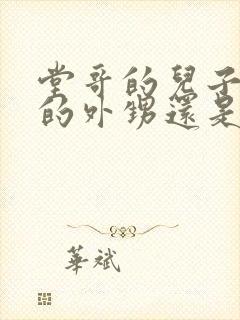 堂哥的兒子
的外甥還是
華斌